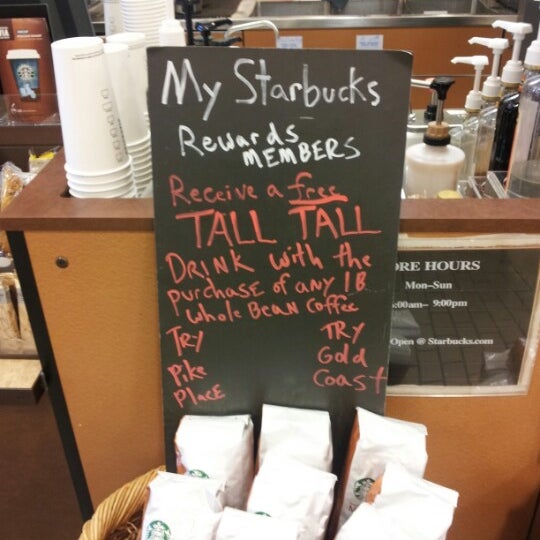 My Starbucks
Rewards
MEMBERS
Receive a free
TALL TALL
DRINK with the
purchase of any 1B
whole Bean Coffee
TRY
Pike
Place
TRY
Gold
Coast
ORE HOURS
Mon–Sun
:00am– 9:00pm
Open @ Starbucks.com